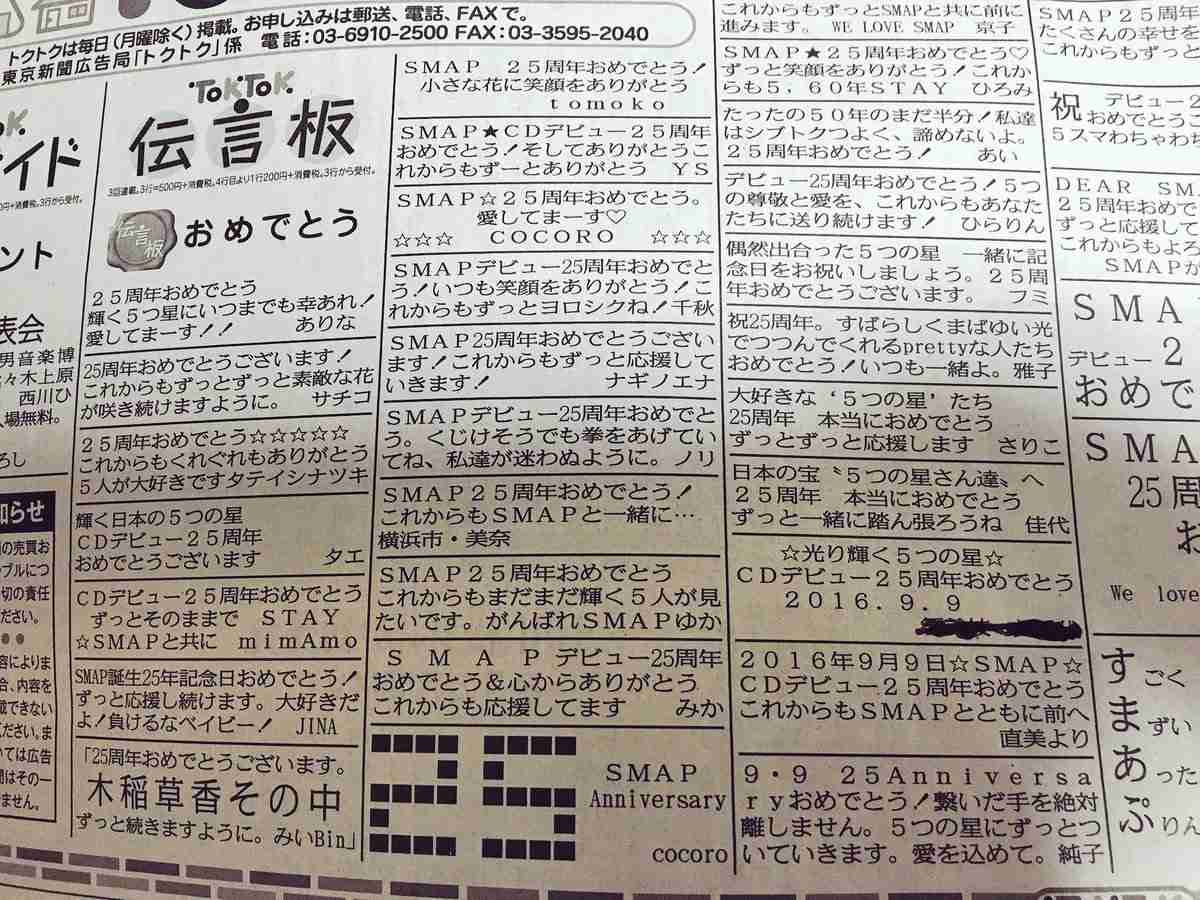 トクトクは毎日(月曜除く)掲載。お申し込みは郵送、電話、FAXで。
東京新聞広告局「トクトク」係　電話:03-6910-2500 FAX:03-3595-2040
イド
ント
表会
男音楽博
々木上原
西川ひ
入場無料。
ろし
知らせ
TOKTOK
伝言板
3回連載。3行=500円+消費税。4行目より1行200円+消費税。3行から受付。
伝言板
おめでとう
２５周年おめでとう
輝く５つ星にいつまでも幸あれ！
愛してまーす！！　ありな
25周年おめでとうございます！
これからもずっとずっと素敵な花
が咲き続けますように。　サチコ
２５周年おめでとう☆☆☆☆☆
これからもくれぐれもありがとう
５人が大好きですタテイシナツキ
輝く日本の５つの星
CDデビュー２５周年
おめでとうございます　タエ
CDデビュー２５周年おめでとう
ずっとそのままで　STAY
☆SMAPと共に　mimAmo
SMAP誕生25年記念日おめでとう！
ずっと応援し続けます。大好きだ
よ！負けるなベイビー！　JINA
「25周年おめでとうございます。
木稲草香その中
ずっと続きますように。みいBin」
SMAP　２５周年おめでとう！
小さな花に笑顔をありがとう
tomoko
SMAP★CDデビュー２５周年
おめでとう！そしてありがとう
これからもずーとありがとう　YS
SMAP☆２５周年おめでとう。
愛してまーす♡
☆☆☆　COCORO　☆☆☆
SMAPデビュー25周年おめでと
う！いつも笑顔をありがとう！こ
れからもずっとヨロシクね！千秋
SMAP25周年おめでとうござい
ます！これからもずっと応援して
いきます！　ナギノエナ
SMAPデビュー25周年おめでと
う。くじけそうでも拳をあげてい
てね、私達が迷わぬように。ノリ
SMAP２５周年おめでとう！
これからもSMAPと一緒に…
横浜市・美奈
SMAP25周年おめでとう
これからもまだまだ輝く５人が見
たいです。がんばれSMAPゆか
ＳＭＡＰデビュー25周年
おめでとう＆心からありがとう
これからも応援してます　みか
25
SMAP
Anniversary
cocoro
これからもずっとSMAPと共に前に
進みます。 WE LOVE SMAP　京子
SMAP★２５周年おめでとう♡
ずっと笑顔をありがとう！これか
らも５，６０年STAY　ひろみ
たったの５０年のまだ半分！私達
はシブトクつよく、諦めないよ。
２５周年おめでとう！　あい
デビュー25周年おめでとう！５つ
の尊敬と愛を、これからもあなた
たちに送り続けます！　ひらりん
偶然出合った５つの星　一緒に記
念日をお祝いしましょう。２５周
年おめでとうございます。　フミ
祝25周年。すばらしくまばゆい光
でつつんでくれるprettyな人たち
おめでとう！いつも一緒よ。雅子
大好きな‘５つの星’たち
25周年　本当におめでとう
ずっとずっと応援します　さりこ
日本の宝〝５つの星さん達〟へ
２５周年　本当におめでとう
ずっと一緒に踏ん張ろうね　佳代
☆光り輝く５つの星☆
CDデビュー２５周年おめでとう
２０１６．９．９
２０１６年９月９日☆SMAP☆
CDデビュー２５周年おめでとう
これからもSMAPとともに前へ
直美より
９・９　25Anniversa
ryおめでとう！繋いだ手を絶対
離しません。５つの星にずっとつ
いていきます。愛を込めて。純子
SMAP２５周年
たくさんの幸せを
これからもずっと
祝　デビュー２
おめでとうご
５スマわちゃわち
DEAR SM
２５周年おめで
ずっと応援して
これからもよろ
SMAPが
SMA
デビュー２
おめで
SMA
25周
お
We love
すごく
まずい
あった
ぷりん